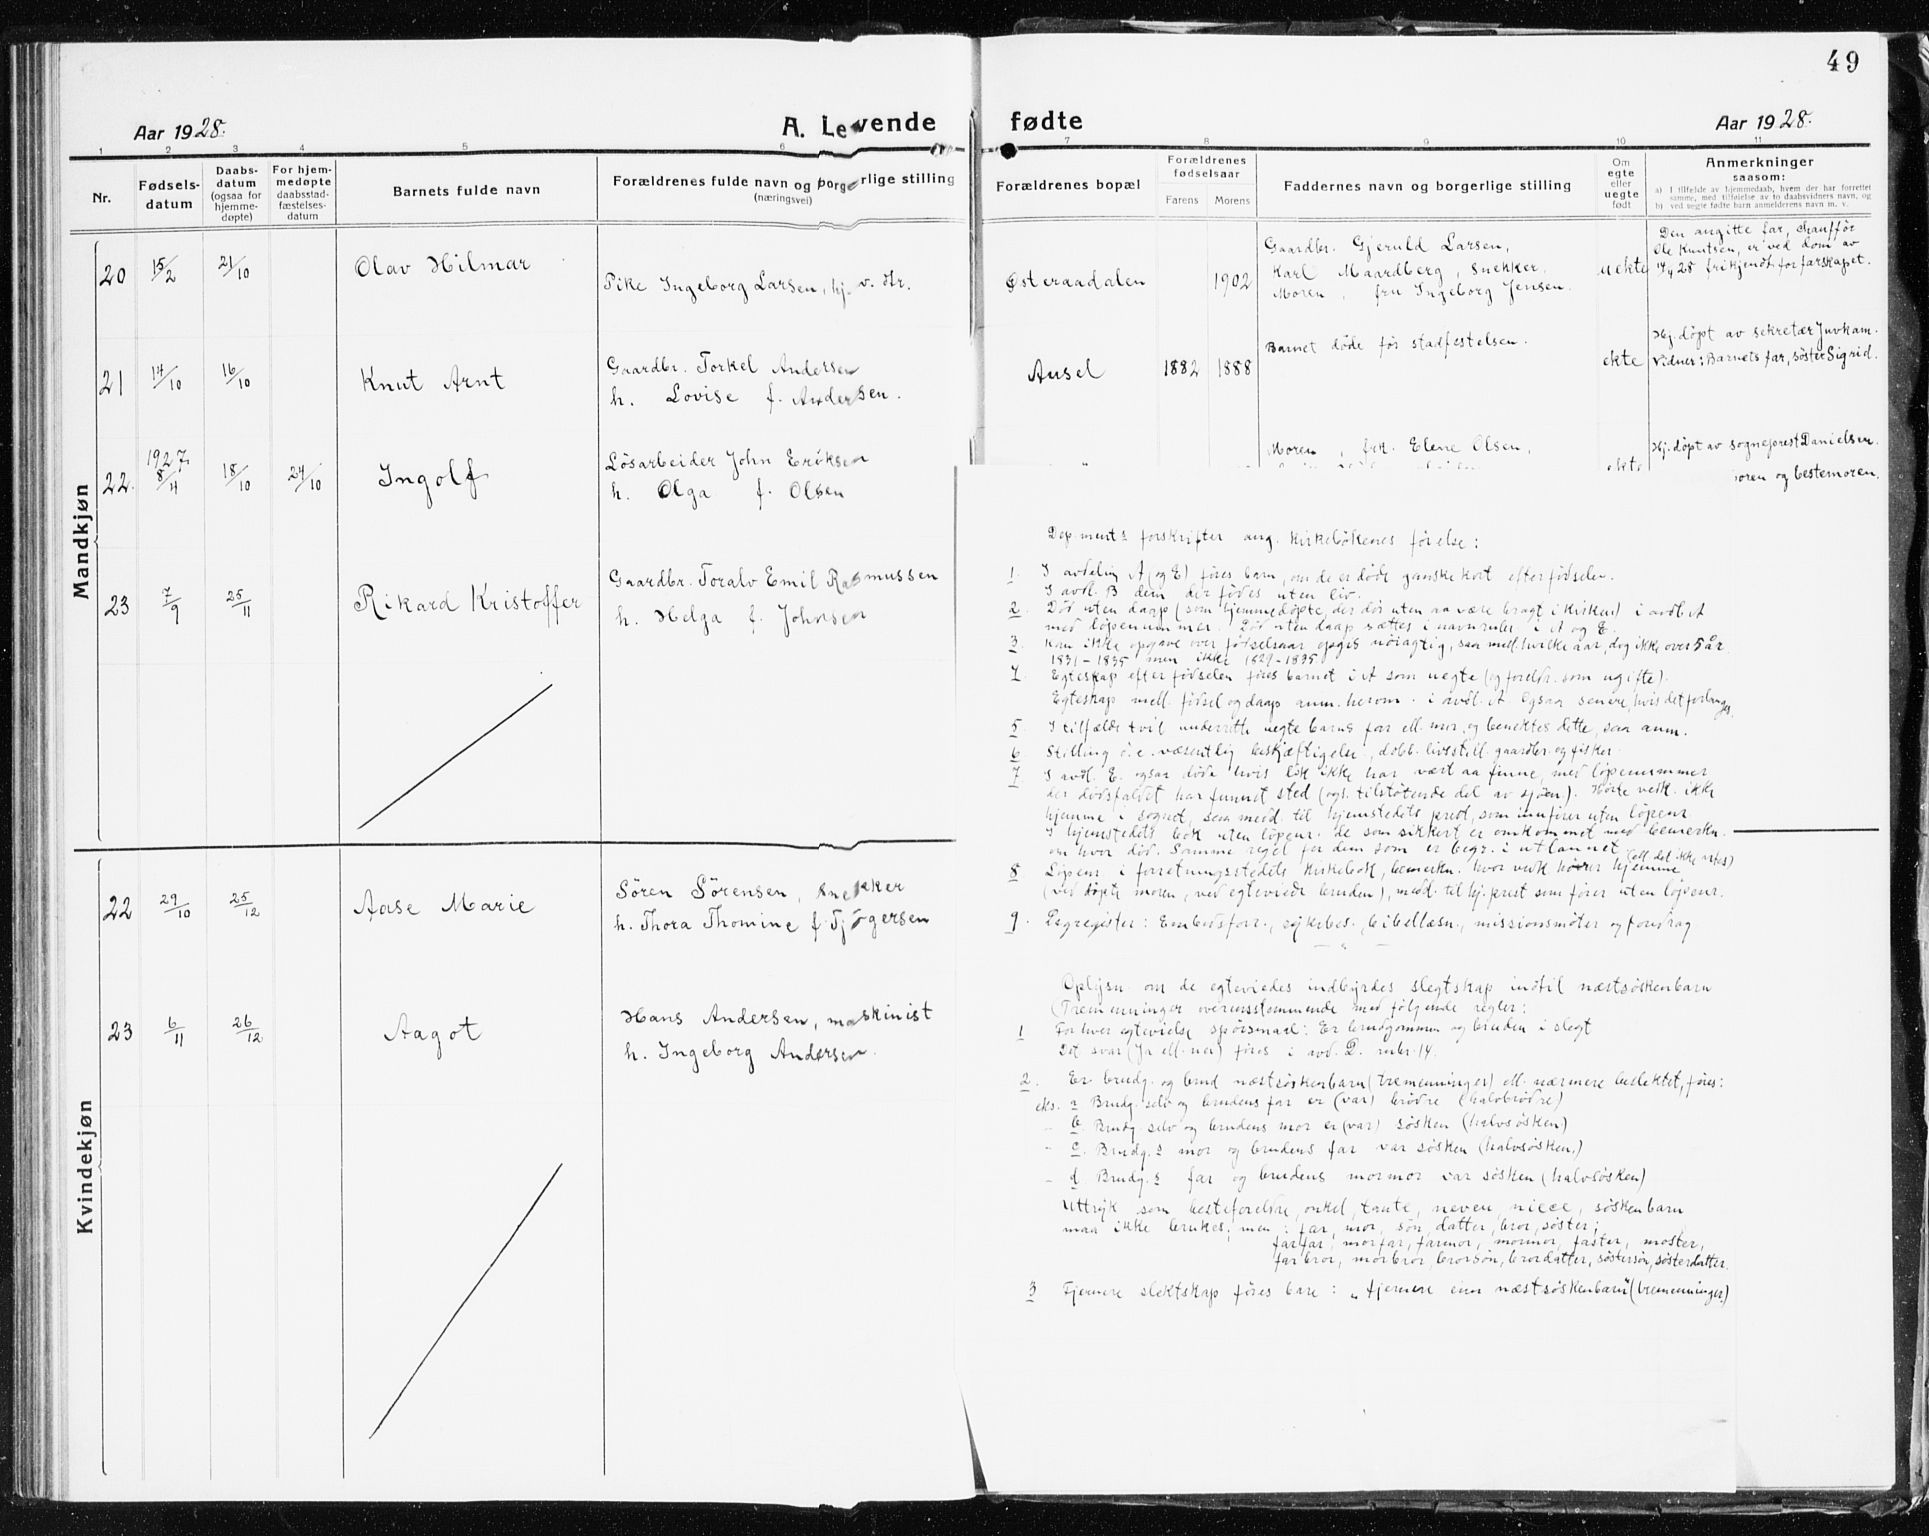 49
Aar 1928.
A. Levende
fødte
Aar 1928.
1 2 3 4 5 6 7 8 9 10 11
Nr.
Fødsels-
datum
Daabs-
datum
(ogsaa for
hjemme-
døpte)
For hjem-
medøpte
daabsstad-
fæstelses-
datum
Barnets fulde navn
Forældrenes fulde navn og borgerlige stilling
(næringsvei)
Forældrenes bopæl
Forældrenes
fødselsaar
Farens Morens
Faddernes navn og borgerlige stilling
Om
egte
eller
uegte
født
Anmerkninger
saasom:
a) I tilfælde av hjemmedaab, hvem der har forrettet
samme, med tilføielse av to daabsvidners navn, og
b) ved uegte fødte barn anmelderens navn m. v.
Mandkjøn
20 15/2 21/10 Olav Hilmar
Pike Ingeborg Larsen, hj. v. str.
Østeraadalen 1902
Gaardbr. Gjeruld Larsen,
Karl Maardberg, snekker.
Moren, fru Ingeborg Jensen.
uekte
Den angitte far, chauffør
Ole Knutsen, er ved dom av
28 frikjendt for farskapet.
21 14/10 16/10 Knut Arnt
Gaardbr. Torkel Andersen
h. Lovise f. Andersen.
Ausel 1882 1888
Barnet døde før stadfestelsen.
ekte
Hj. døpt av sekretær Juvkam.
Vidner: Barnets far, søster Sigrid.
22. 1927 8/4 18/10 24/10 Ingolf
Løsarbeider John Eriksen
h. Olga f. Olsen
Moren, frk. Elene Olsen,
ekte
Hj. døpt av sogneprest Danielsen.
moren og bestemoren.
23 7/9 25/11 Rikard Kristoffer
Gaardbr. Toralv Emil Rasmussen
h. Helga f. Johnsen
Kvindekjøn
22 29/10 25/12 Aase Marie
Sören Sørensen, snekker
h. Thora Thomine f. Tjøgersen
23 6/11 26/12 Aagot
Hans Andersen, maskinist
h. Ingeborg Andersen.
Dep.ments forskrifter ang. kirkebökenes förelse:
1. I avdeling A (og E) föres barn, om de er döde ganske kort efter födselen.
I avd. B dem der födes uten liv.
2. Död uten daap (som hjemmedöpte, der dör uten aa være bragt i kirken) i avd. A
med löpenummer. Död uten daap sættes i navnrubr. i A og E.
3. Kan ikke opgave over födselsaar opgis nöiagtig, saa mell. hvilke aar, dog ikke over 5 år.
1831-1835 men ikke 1829-1835
4. Egteskap efter födselen föres barnet i A som uegte (og foreldr. som ugifte).
Egteskap mell. födsel og daap anm. herom i avd. A. Ogsaa senere, hvis det forlanges.
5. I tilfælde tvil underrette uegte barns far ell. mor, og benektes dette, saa anm.
6. Stilling o: e. væsentlig beskjæftigelse, dobb. livsstill. gaardbr. og fisker.
7. I avd. E. ogsaa döde hvis lik ikke har vært aa finne, med löpenummer
der dödsfaldet har funnet sted (ogs. tilstötende del av sjöen). Hörte vedk. ikke
hjemme i sognet, saa medd. til hjemstedets prest, som innförer uten löpenr.
I hjemstedets bok uten löpenr. de som sikkert er omkommet med bemerkn.
om hvor död. Samme regel for dem som er begr. i utlannet
8. Löpenr. i forretningsstedets kirkebok, bemerkn. hvor vedk hörer hjemme (ell. det ikke vites)
(ved döpte moren, ved egteviede bruden), medd. til hj. prest som förer uten löpenr.
9. Dagregister: Embedsforr., sykebes., bibellæsn., missionsmöter og foredrag
Oplysn. om de egteviedes indbyrdes slegtskap indtil næstsöskenbarn
(Tremenninger overensstemmende med fölgende regler:
1 For hver egtevielse spörsmaal: Er brudgommen og bruden i slegt
Det svar (Ja ell. nei) föres i avd. D. rubr. 14.
2. Er brudg. og brud næstsöskenbarn (tremenninger) ell. nærmere beslektet, föres:
eks. a Brudg. selv og brudens far er (var) brödre (halvbrödre)
- b. Brudg. selv og brudens mor er (var) søsken (halvsøsken)
- c. Brudg.s mor og brudens far var søsken (halvsøsken,)
- d. Brudg.s far og brudens mormor var søsken (halvsøsken)
Uttryk som besteforeldre, onkel, tante, neveu, niece, söskenbarn
maa ikke brukes, men: far, mor, sön, datter, bror, söster;
farfar, morfar, farmor, mormor, faster, moster,
farbror, morbror, brorsön, brordatter, söstersön, sösterdatter.
3 Fjernere slektskap föres bare: „fjernere enn næstsöskenbarn" (tremenninger)